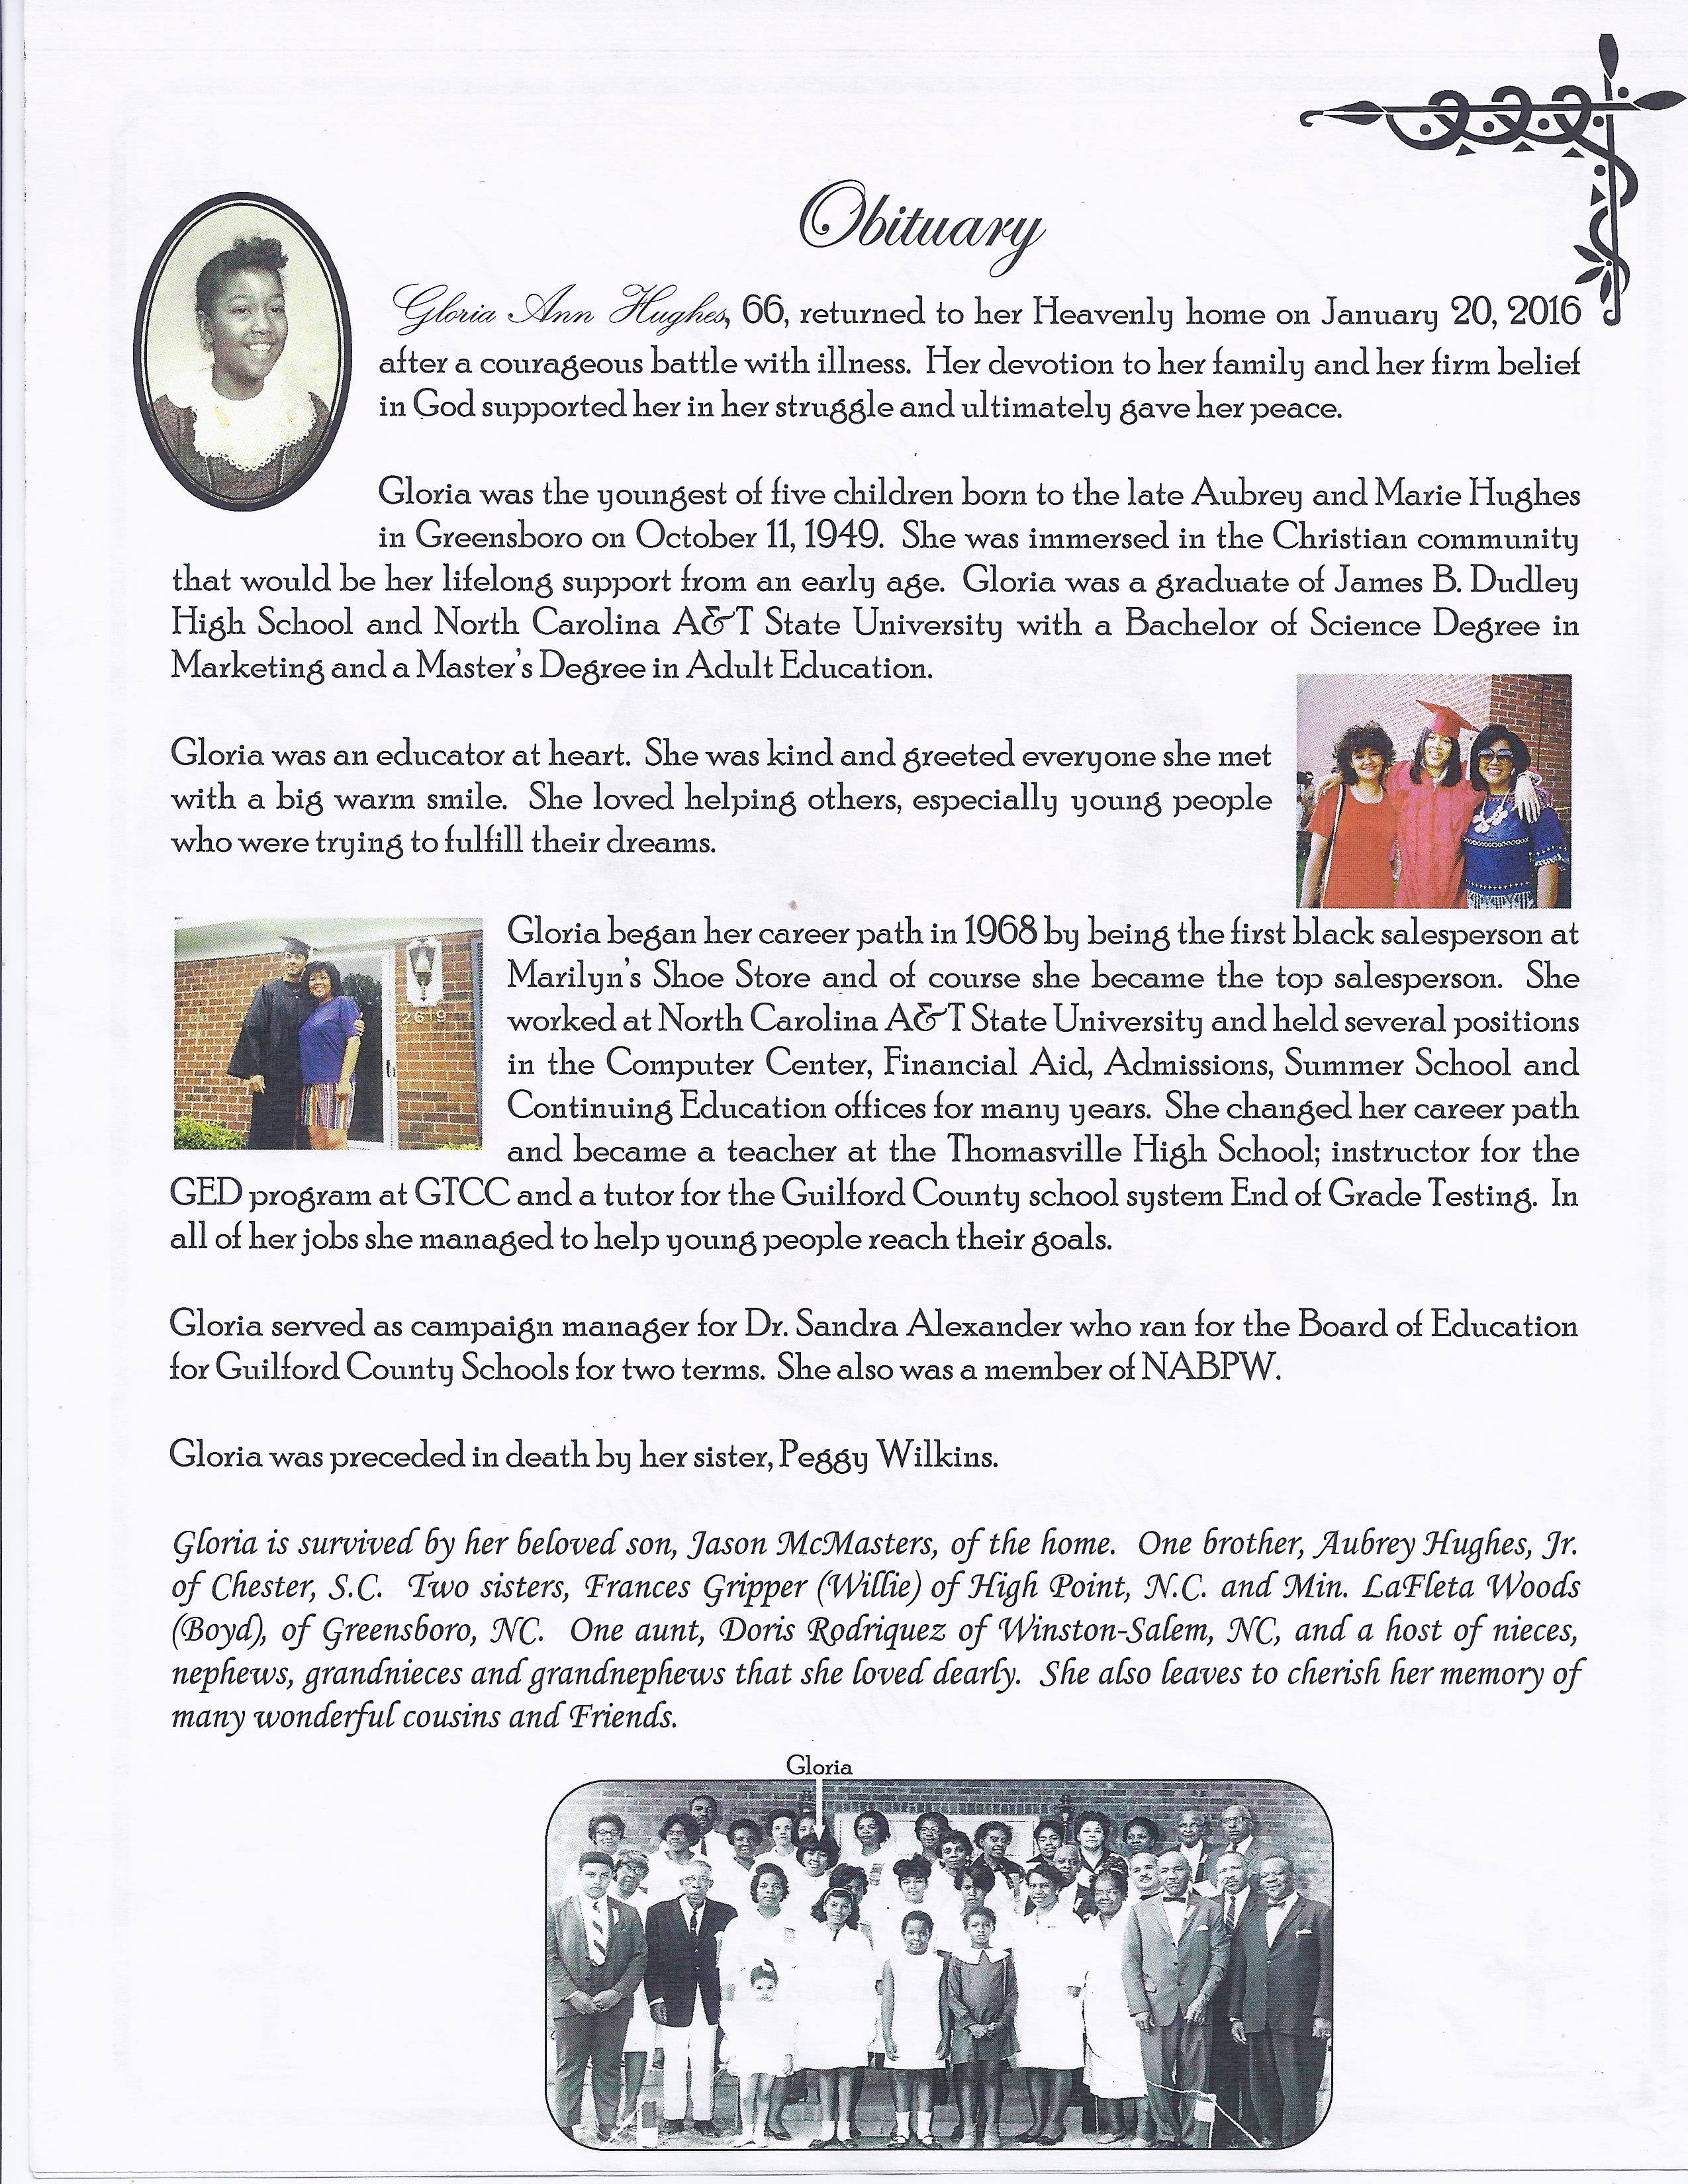 Obituary
Gloria Ann Hughes, 66, returned to her Heavenly home on January 20, 2016
after a courageous battle with illness. Her devotion to her family and her firm belief
in God supported her in her struggle and ultimately gave her peace.
Gloria was the youngest of five children born to the late Aubrey and Marie Hughes
in Greensboro on October 11, 1949. She was immersed in the Christian community
that would be her lifelong support from an early age. Gloria was a graduate of James B. Dudley
High School and North Carolina A&T State University with a Bachelor of Science Degree in
Marketing and a Master's Degree in Adult Education.
Gloria was an educator at heart. She was kind and greeted everyone she met
with a big warm smile. She loved helping others, especially young people
who were trying to fulfill their dreams.
Gloria began her career path in 1968 by being the first black salesperson at
Marilyn's Shoe Store and of course she became the top salesperson. She
worked at North Carolina A&T State University and held several positions
in the Computer Center, Financial Aid, Admissions, Summer School and
Continuing Education offices for many years. She changed her career path
and became a teacher at the Thomasville High School; instructor for the
GED program at GTCC and a tutor for the Guilford County school system End of Grade Testing. In
all of her jobs she managed to help young people reach their goals.
2619
Gloria served as campaign manager for Dr. Sandra Alexander who ran for the Board of Education
for Guilford County Schools for two terms. She also was a member of NABPW.
Gloria was preceded in death by her sister, Peggy Wilkins.
Gloria is survived by her beloved son, Jason McMasters, of the home. One brother, Aubrey Hughes, Jr.
of Chester, S.C. Two sisters, Frances Gripper (Willie) of High Point, N.C. and Min. LaFleta Woods
(Boyd), of Greensboro, NC. One aunt, Doris Rodriquez of Winston-Salem, NC, and a host of nieces,
nephews, grandnieces and grandnephews that she loved dearly. She also leaves to cherish her memory of
many wonderful cousins and Friends.
Gloria